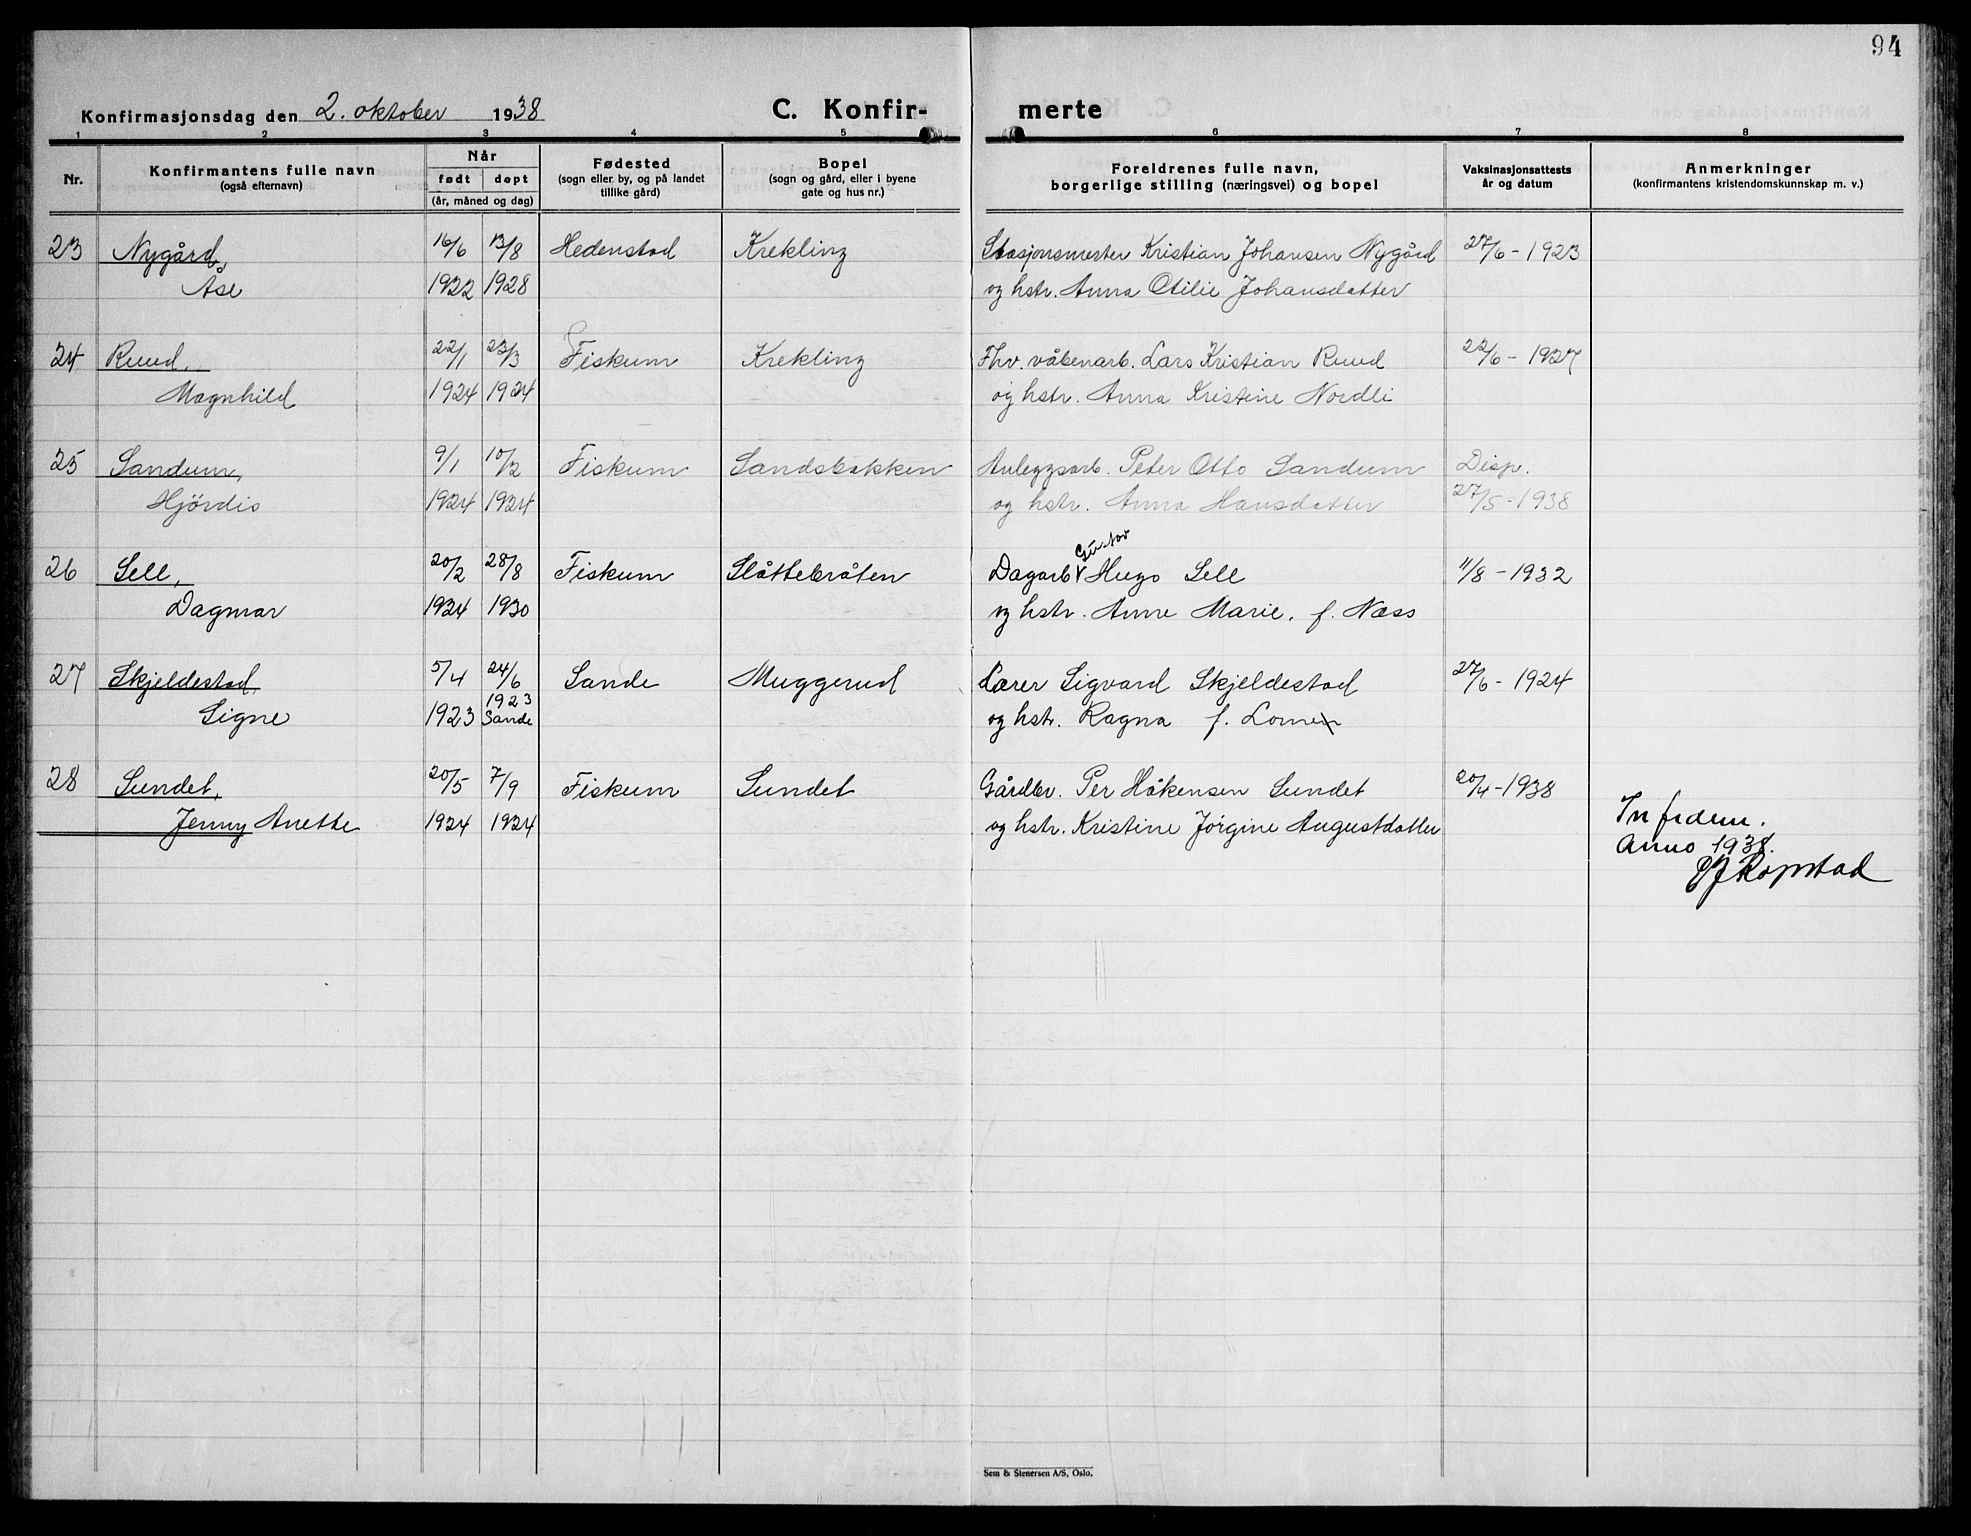 94
Konfirmasjonsdag den 2. oktober 1938
C. Konfir- merte
1 2 3 4 5 6 7 8
Nr.
Konfirmantens fulle navn
(også efternavn)
Når
født døpt
(år, måned og dag)
Fødested
(sogn eller by, og på landet
tillike gård)
Bopel
(sogn og gård, eller i byene
gate og hus nr.)
Foreldrenes fulle navn,
borgerlige stilling (næringsvei) og bopel
Vaksinasjonsattests
år og datum
Anmerkninger
(konfirmantens kristendomskunnskap m. v.)
23 Nygård, 16/6 13/8 Hedenstad Krekling Stasjonsmester Kristian Johansen Nygård 27/6 - 1923
Åse 1922 1928 og hstr. Anna Otilie Johansdatter
24 Ruud, 22/1 23/3 Fiskum Krekling Fhv. våbenarb. Lars Kristian Ruud 22/6 - 1927
Magnhild 1924 1924 og hstr. Anna Kristine Nordli
25 Sandum, 9/1 10/2 Fiskum Sandsbakken Anleggsarb. Peter Otto Sandum Disp.
Hjördis 1924 1924 og hstr. Anna Hansdatter 27/5 - 1938
Gustav
26 Sell, 20/2 28/8 Fiskum Slåttebråten Dagarb V Hugo Sell 11/8 - 1932
Dagmar 1924 1930 og hstr. Anne Marie, f. Næss
27 Skjeldestad, 5/4 24/6 Sande Muggerud Lærer Sigvard Skjeldestad 27/6 - 1924
1923
Signe 1923 Sande og hstr. Ragna f. Lomen
28 Sundet, 20/5 7/9 Fiskum Sundet Gårdbr. Per Håkensen Sundet 20/4 - 1938
Jenny Anette 1924 1924 og hstr. Kristine Jörgine Augustdatter
In fidem.
Anno 1938.
Ropstad
Sem & Stenersen A/S, Oslo.